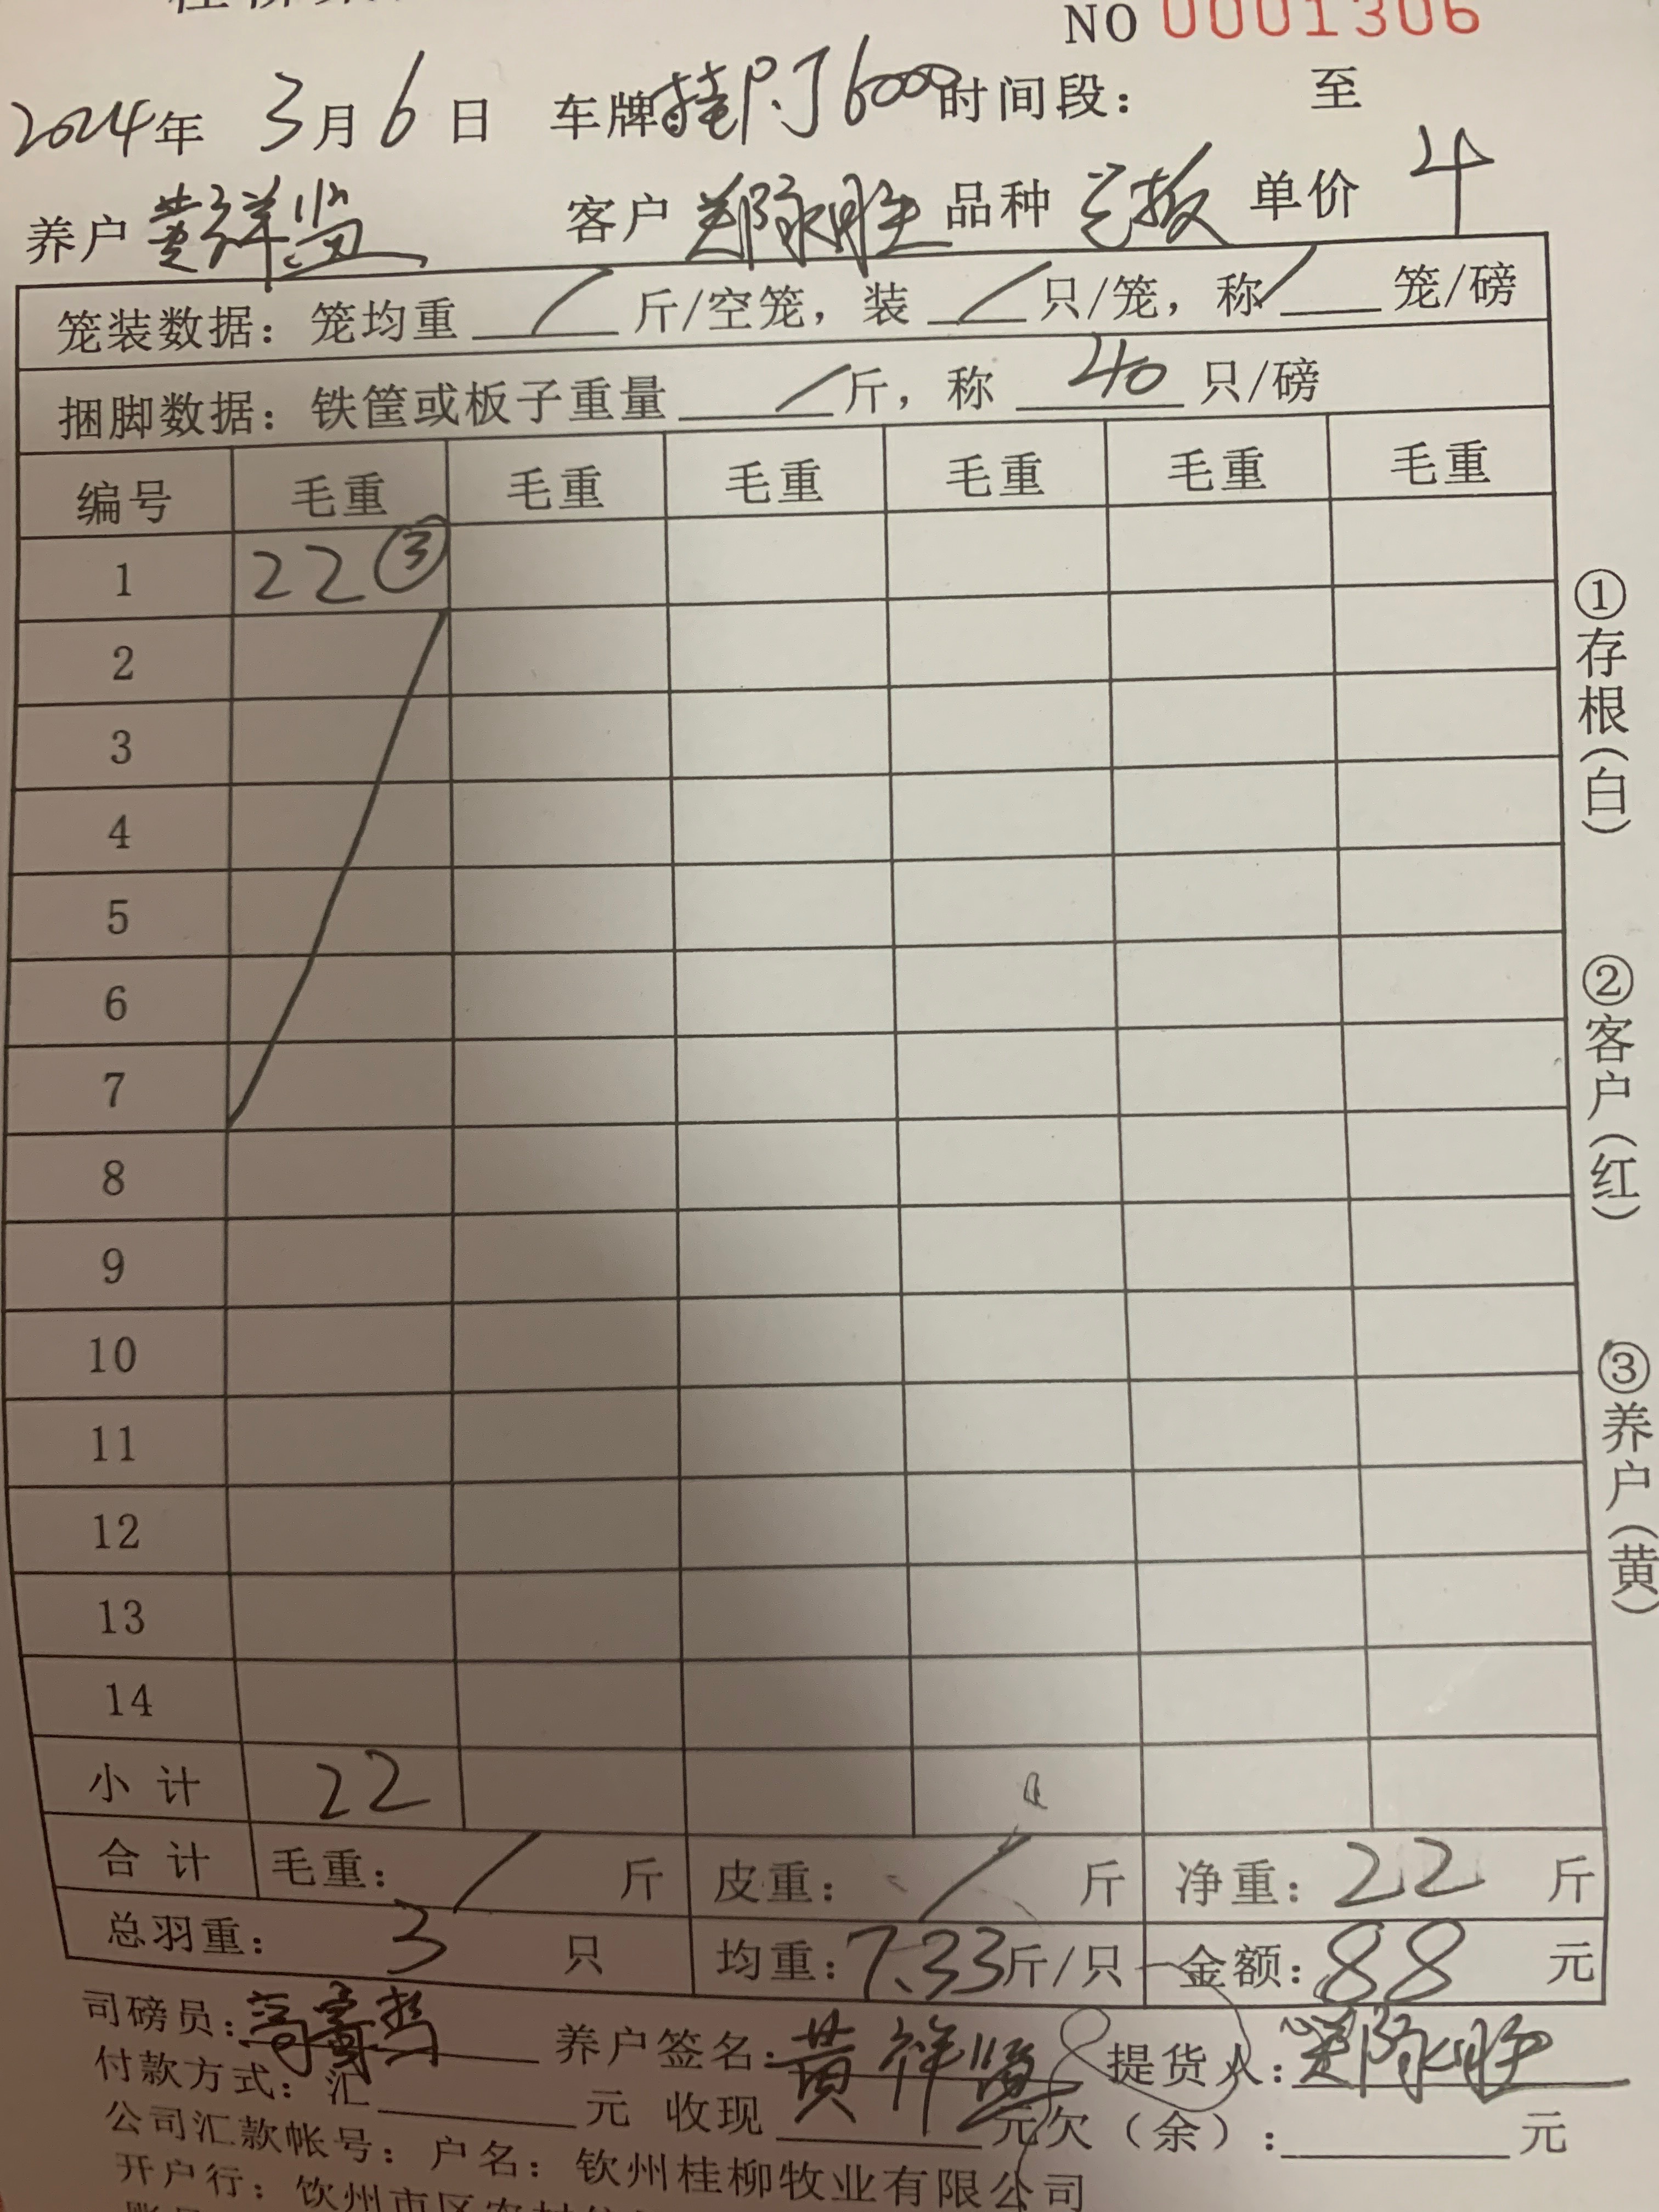 NO 0001306
2024年 3月6日 车牌 6000 时间段： 至
养户 黄祥 客户 郑 胜 品种 板 单价 4
笼装数据：笼均重 / 斤/空笼，装 / 只/笼，称 / 笼/磅
捆脚数据：铁筐或板子重量 / 斤，称 40 只/磅
编号 毛重 毛重 毛重 毛重 毛重 毛重
1 22 ③
2
3
4
5
6
7
8
9
10
11
12
13
14
小计 22
合计 毛重： / 斤 皮重： / 斤 净重：22 斤
总羽重： 3 只 均重：7.33斤/只 金额：88 元
①存根（白）
②客户（红）
③养户（黄）
司磅员： 养户签名：黄祥 提货人：郑
付款方式：汇 元 收现 元欠（余）： 元
公司汇款帐号：户名：钦州桂柳牧业有限公司
开户行：钦州市区农村